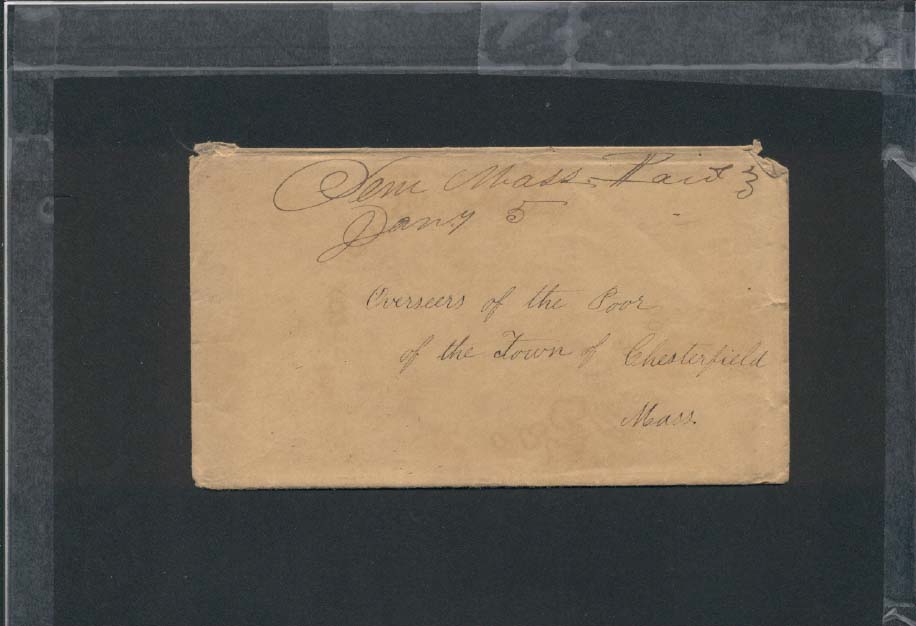 Peru Mass. Paid 3
Jany 5
Overseers of the Poor
of the Town of Chesterfield
Mass.